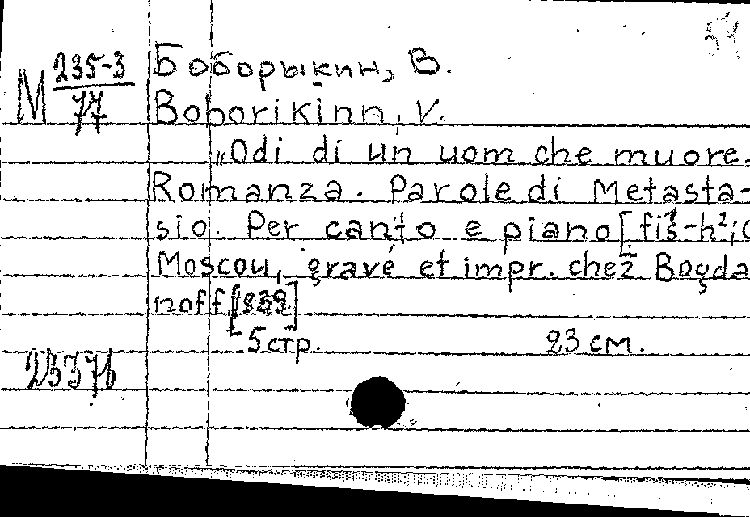 54
М 235-3
77
Боборыкин, В.
Boborikinn, V.
„Odi di un uom che muore.
Romanza. Parole di Metasta-
sio. Per canto e piano [fis¹-h²;
Moscou, gravé et impr. chez Bogda
noff [1839]
5 стр. 23 см.